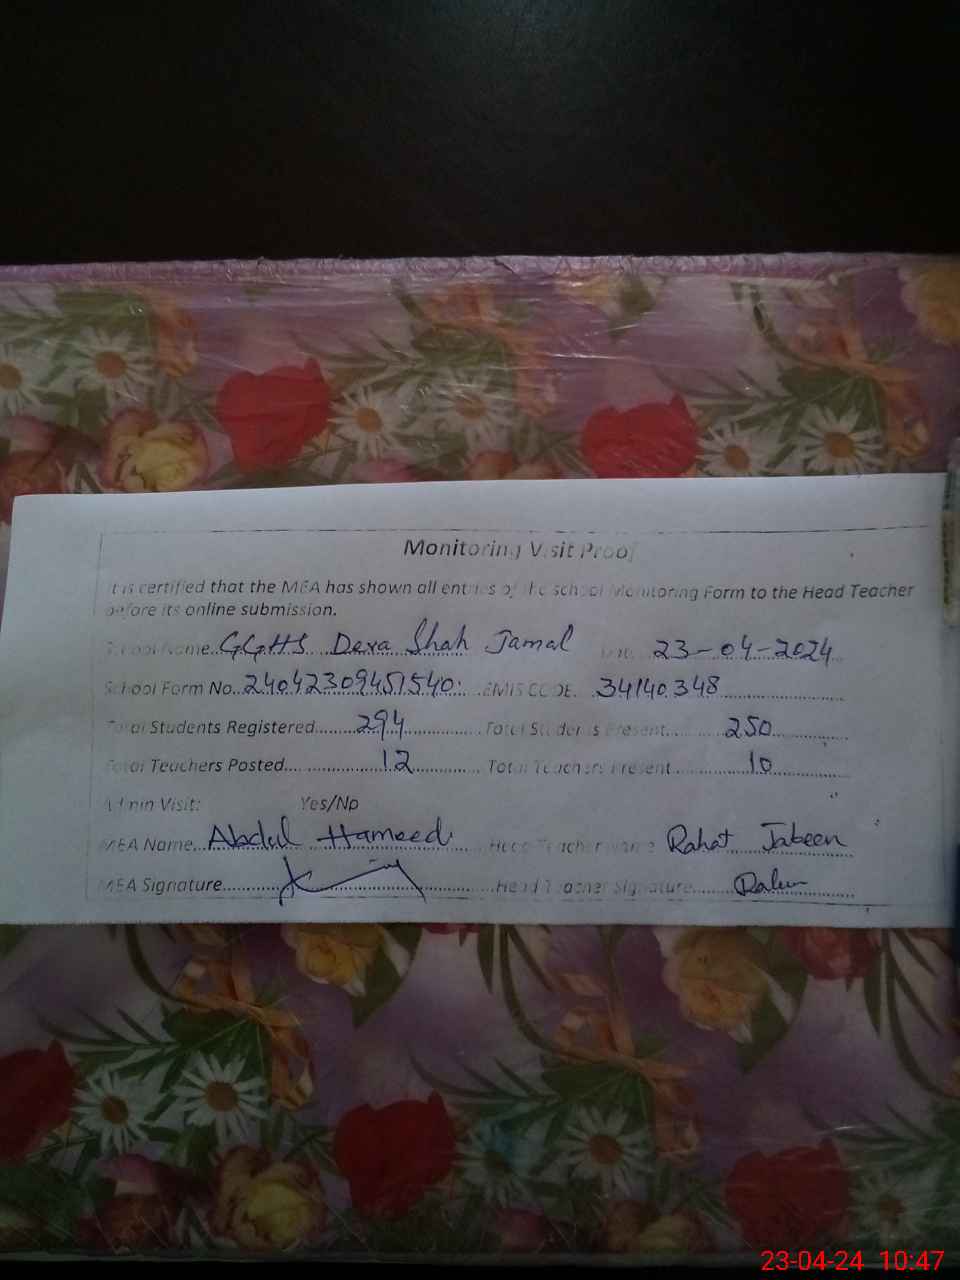 Monitoring Visit Proof
It is certified that the MEA has shown all entries of the school Monitoring Form to the Head Teacher
before its online submission.
School Name GGHS Dera Shah Jamal Date 23-04-2024
School Form No. 24042309451540 EMIS CODE. 34140348
Total Students Registered 294 Total Students Present 250
Total Teachers Posted 12 Total Teachers Present 10
Admin Visit: Yes/No
MEA Name Abdul Hameed Head Teacher Name Rahat Jabeen
MEA Signature Head Teacher Signature
23-04-24 10:47